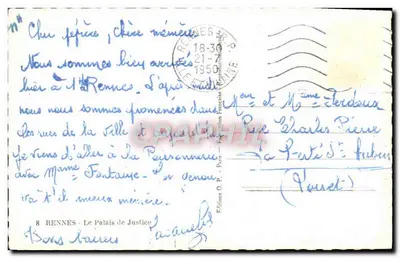 Cher pépère, chère mémère
Nous sommes bien arrivés
hier à Rennes. L'après midi
nous nous sommes promenées dans
les rues de la ville
Je viens d'aller à la Poissonnerie
avec Mame Fontaine
va t'il mieux mémère.
8 RENNES - Le Palais de Justice
Bons baisers
RENNES R.P.
18-30
21-7
1950
ILLE ET VILAINE
Mr et Mame
Rue Charles Pierre
La Ferté St Aubin
(Loiret)